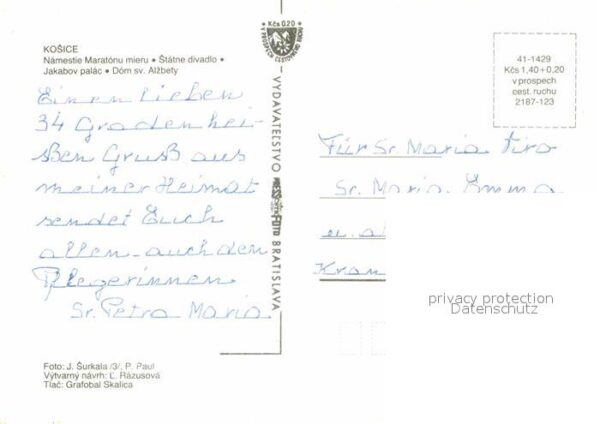 KOŠICE
Námestie Maratónu mieru • Štátne divadlo •
Jakabov palác • Dóm sv. Alžbety
Einen lieben
34 Graden hei-
ßen Gruß aus
meiner Heimat
sendet Euch
allen - auch den
Pflegerinnen
Sr. Petra Maria
Foto: J. Šurkala /3/, P. Paul
Výtvarný návrh: Ľ. Rázusová
Tlač: Grafobal Skalica
Kčs 0,20
V PROSPECH CESTOVNÉHO RUCHU
VYDAVATEĽSTVO PRESSFOTO BRATISLAVA
41-1429
Kčs 1,40+0,20
v prospech
cest. ruchu
2187-123
Für Sr. Maria
Sr. Maria Emma
u. al
Kran
privacy protection
Datenschutz